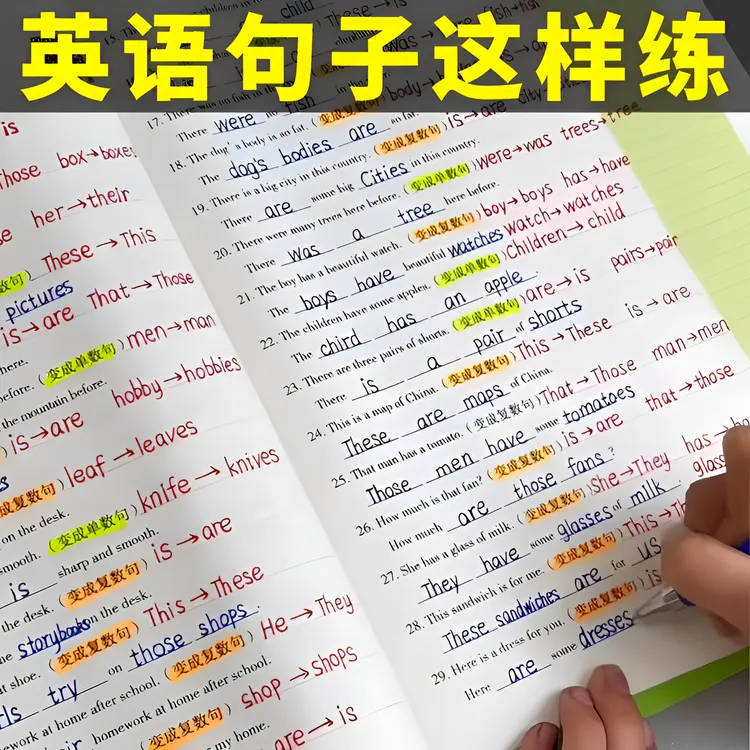 英语句子这样练
is
those box→boxes
her→their
These→This
pictures
is→are That→Those
here. (变成单数句) men→man
the mountain before.
is→are hobby→hobbies
leaf→leaves
on the desk.
(变成单数句) knife→knives
smooth.
is sharp and smooth.
the desk. (变成复数句) is→are
storybooks on the desk.
(变成复数句) This→These
at shoe.
try on those shops.
after school. (变成复数句) He→They
homework at home after school.
(变成复数句) shop→shops
my home.
are→is
child these→is
was→are fish→fish
17.
There were no fish in
18. The dog's body is so fat. (变成复数句) body→bodies
The dog's bodies are so fat.
19. There is a big city in this country. (变成复数句) is→are city→
There are some big Cities in this country.
20. There were many trees here before. (变成单数句) were→was trees→tree
There was a tree here before.
21. The boy has a beautiful watch. (变成复数句) boy→boys has→have
watch→watches
The boys have beautiful watches
22. The children have some apples. (变成单数句) Children→child
The chird has an apple.
23. There are three pairs of shorts. (变成单数句) are→is pairs→pair
There is a pair of shorts
24. This is a map of China. (变成复数句) This→These is→are
These are maps of China.
25. That man has a tomato. (变成复数句) That→Those man→men
Those men have some tomatoes
26. How much is that fan? (变成复数句) is→are that→those
How much are those fans?
27. She has a glass of milk. (变成复数句) She→They has→
They have some glasses of milk.
28. This sandwich is for me. (变成复数句) This→
These sandwiches are for us
29. Here is a dress for you. (变成复数句) is
Here are some dresses